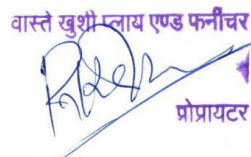 वास्ते खुशी प्लाय एण्ड फर्नीचर
प्रोप्रायटर